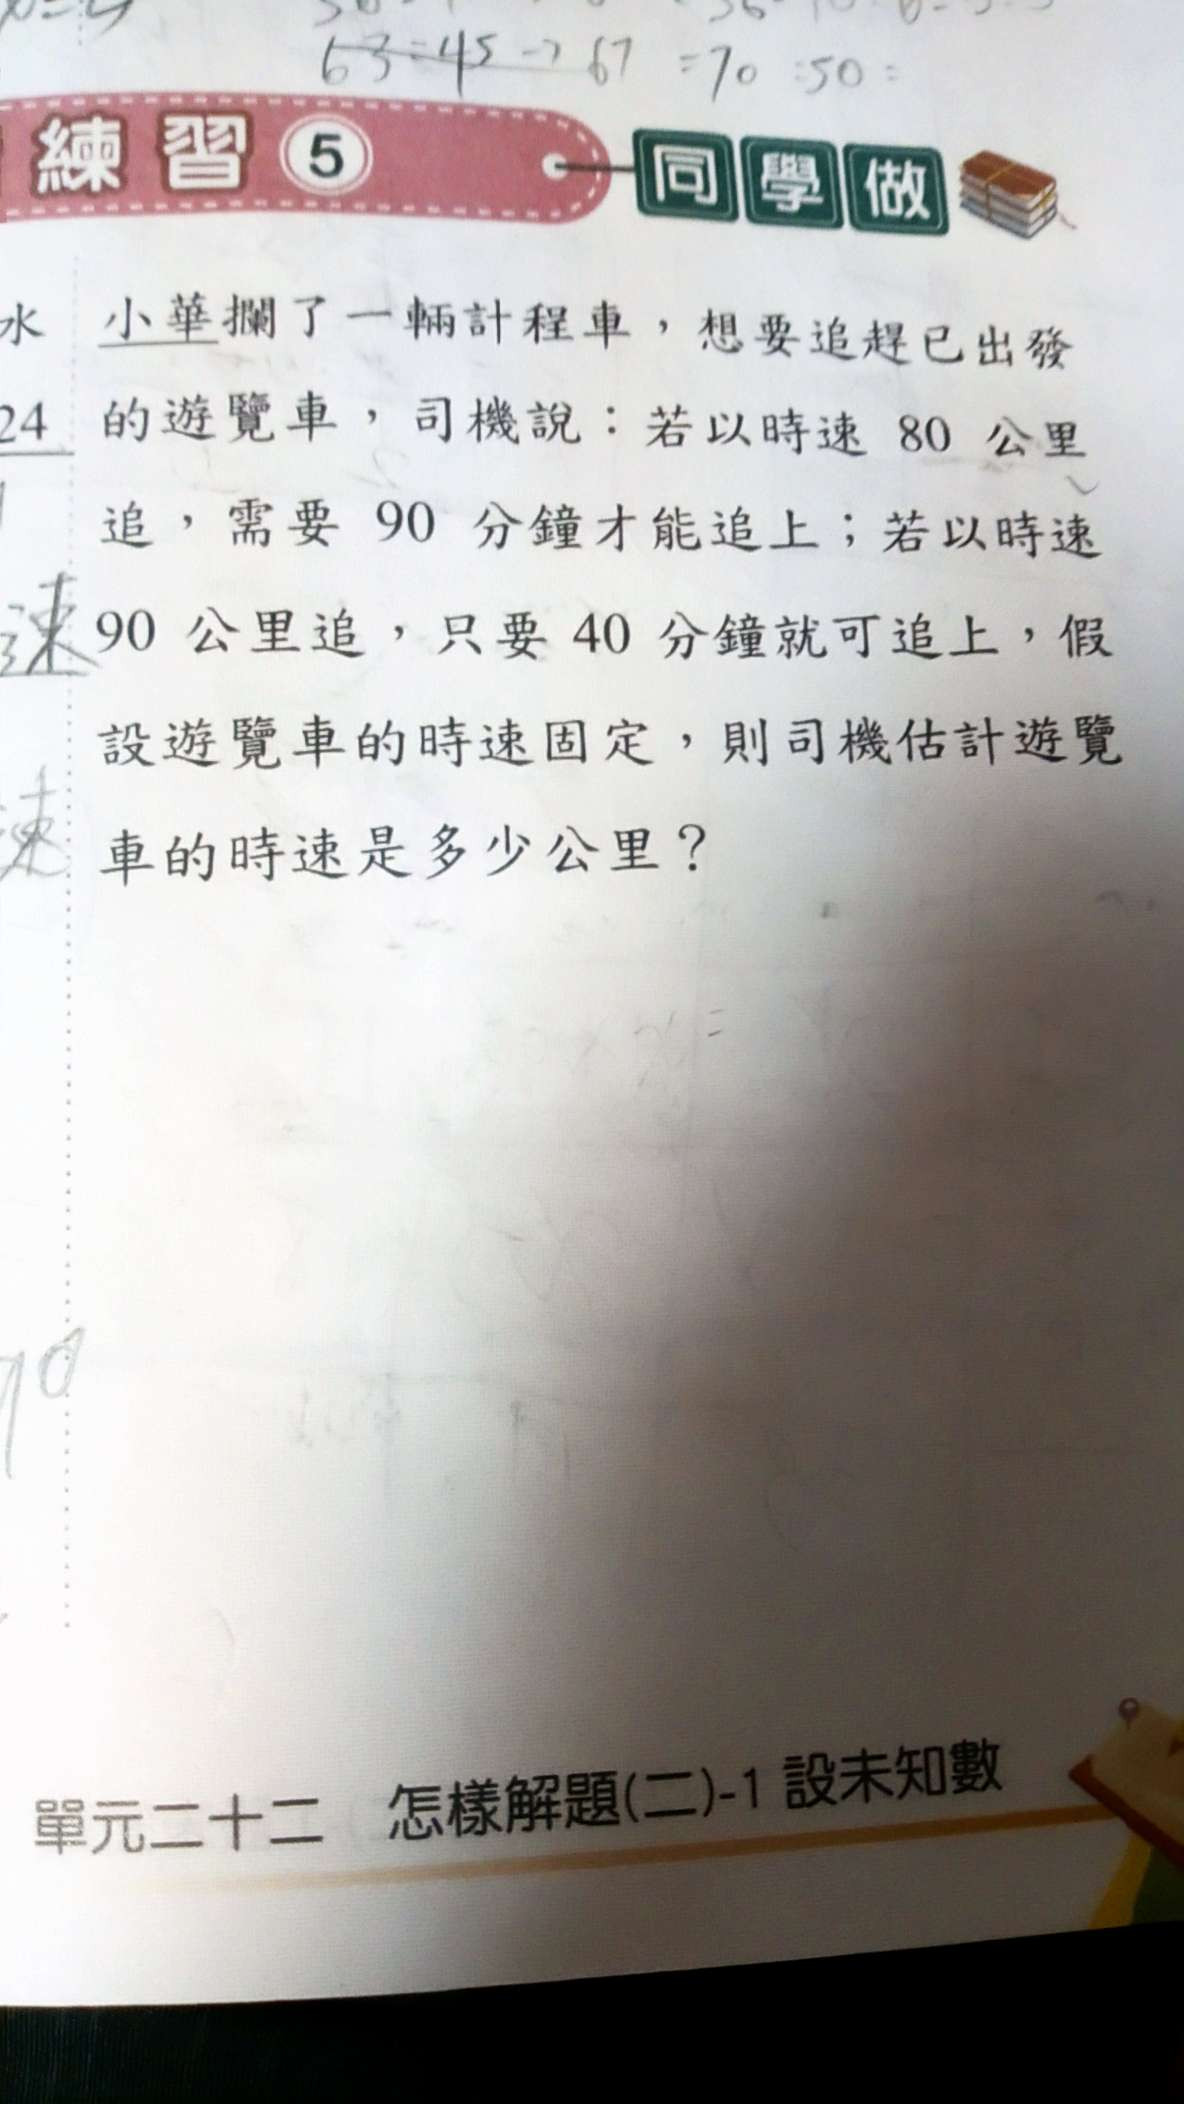 63:45→67 =70:50=
練習 5 同學做
水
24
速
速
70
小華攔了一輛計程車，想要追趕已出發
的遊覽車，司機說：若以時速 80 公里
追，需要 90 分鐘才能追上；若以時速
90 公里追，只要 40 分鐘就可追上，假
設遊覽車的時速固定，則司機估計遊覽
車的時速是多少公里？
單元二十二 怎樣解題(二)-1 設未知數